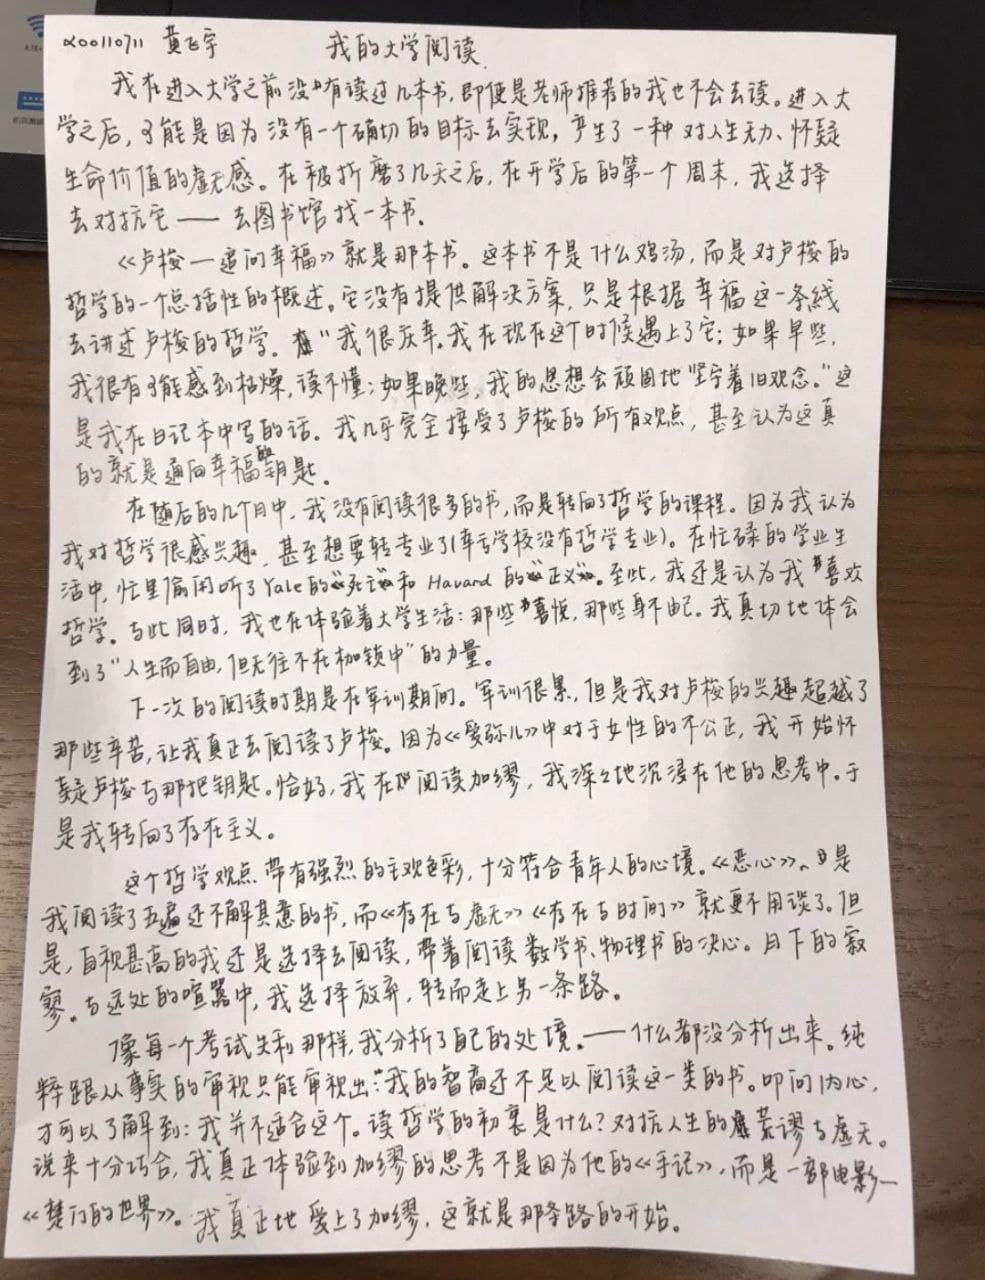 200110711 黄飞宇 我的大学阅读
我在进入大学之前没有读过几本书,即便是老师推荐的我也不会去读。进入大
学之后,可能是因为没有一个确切的目标去实现,产生了一种对人生无力、怀疑
生命价值的虚无感。在被折磨了几天之后,在开学后的第一个周末,我选择
去对抗它——去图书馆找一本书.
《卢梭—追问幸福》就是那本书。这本书不是什么鸡汤,而是对卢梭的
哲学的一个总括性的概述。它没有提供解决方案,只是根据幸福这一条线
去讲述卢梭的哲学. “我很庆幸,我在现在这个时候遇上了它;如果早些,
我很有可能感到枯燥,读不懂;如果晚些,我的思想会顽固地坚守着旧观念.”这
是我在日记本中写的话。我几乎完全接受了卢梭的所有观点,甚至认为这真
的就是通向幸福的钥匙.
在随后的几个月中,我没有阅读很多的书,而是转向了哲学的课程。因为我认为
我对哲学很感兴趣,甚至想要转专业了(幸亏学校没有哲学专业)。在忙碌的学业生
活中,忙里偷闲听了Yale的《死亡》和Havard的《正义》.至此,我还是认为我喜欢
哲学。与此同时,我也在体验着大学生活:那些喜悦,那些身不由己。我真切地体会
到了“人生而自由,但无往不在枷锁中”的力量。
下一次的阅读时期是在军训期间。军训很累,但是我对卢梭的兴趣超越了
那些辛苦,让我真正去阅读了卢梭。因为《爱弥儿》中对于女性的不公正,我开始怀
疑卢梭与那把钥匙。恰好,我在阅读加缪,我深々地沉浸在他的思考中.于
是我转向了存在主义。
这个哲学观点带有强烈的主观色彩,十分符合青年人的心境。《恶心》、是
我阅读了五遍还不解其意的书,而《存在与虚无》《存在与时间》就更不用谈了。但
是,自视甚高的我还是选择去阅读,带着阅读数学书、物理书的决心。月下的寂
寥。与远处的喧嚣中,我选择放弃,转而走上另一条路。
像每一个考试失利那样,我分析了自己的处境.——什么都没分析出来。纯
粹跟从事实的审视只能审视出:我的智商还不足以阅读这一类的书。叩问内心,
才可以了解到:我并不适合这个。读哲学的初衷是什么?对抗人生的荒谬与虚无。
说来十分巧合,我真正体验到加缪的思考不是因为他的《手记》,而是一部电影—
《楚门的世界》。我真正地爱上了加缪,这就是那条路的开始。